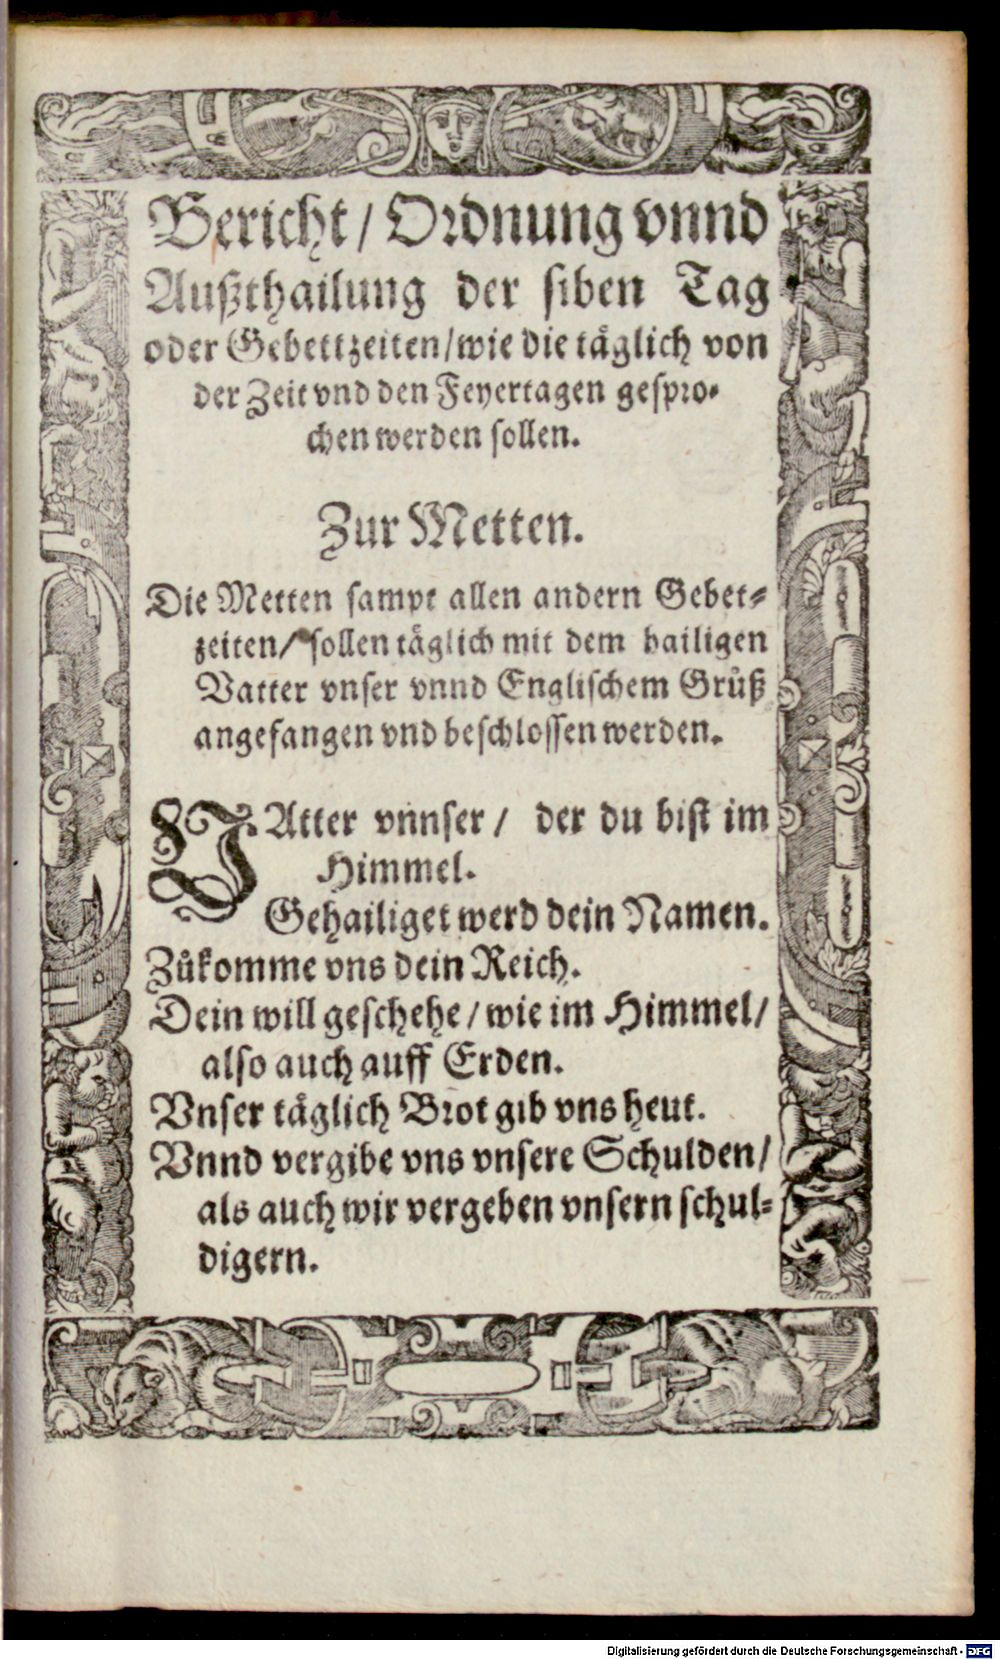 Bericht / Ordnung vnnd
Außthailung der siben Tag
oder Gebettzeiten / wie die täglich von
der Zeit vnd den Feyertagen gespro-
chen werden sollen.
Zur Metten.
Die Metten sampt allen andern Gebet-
zeiten / sollen täglich mit dem hailigen
Vatter vnser vnnd Englischem Grůß
angefangen vnd beschlossen werden.
VAtter vnnser / der du bist im
Himmel.
Gehailiget werd dein Namen.
Zůkomme vns dein Reich.
Dein will geschehe / wie im Himmel /
also auch auff Erden.
Vnser täglich Brot gib vns heut.
Vnnd vergibe vns vnsere Schulden /
als auch wir vergeben vnsern schul-
digern.
Digitalisierung gefördert durch die Deutsche Forschungsgemeinschaft - DFG